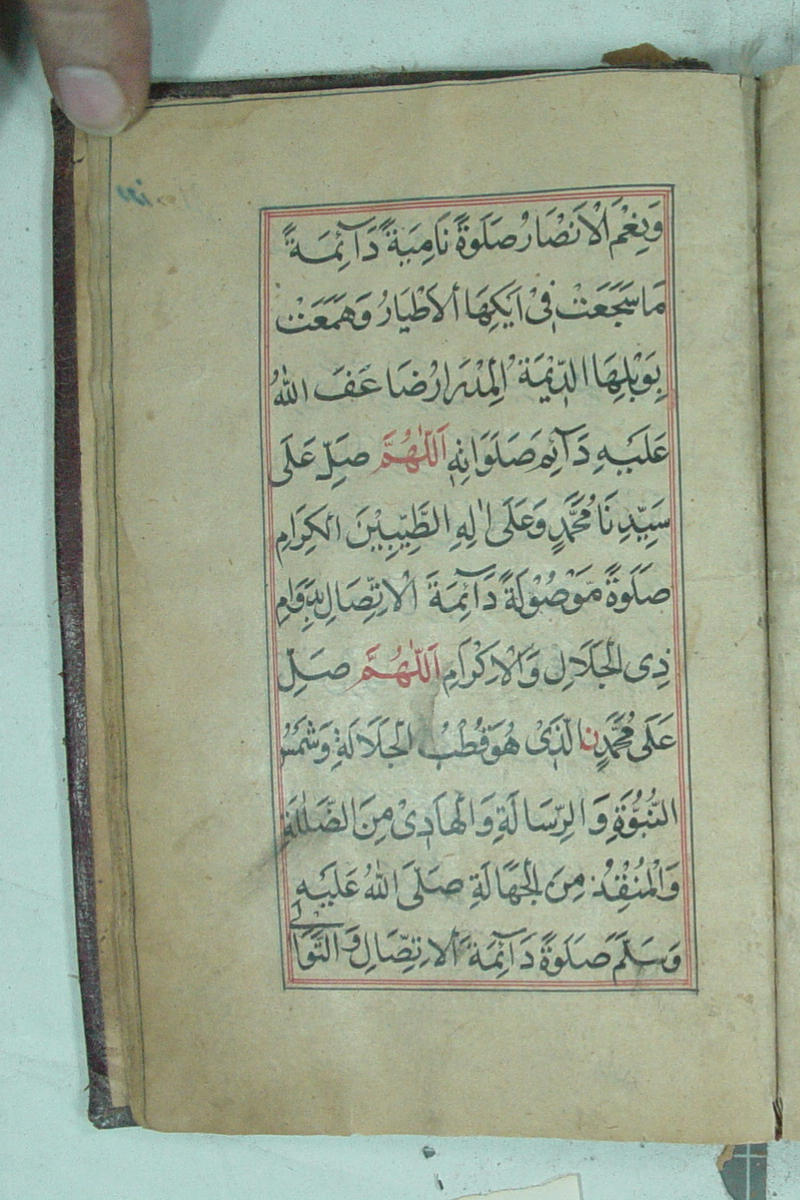 وَنِعْمَ الْاَنْصَارُ صَلٰوةً نَامِيَةً دَآئِمَةً
مَا سَجَعَتْ فِىْ اَيْكِهَا الْاَطْيَارُ وَهَمَعَتْ
بِوَبْلِهَا الدِّيْمَةُ الْمِدْرَارُ ضَاعَفَ اللّٰهُ
عَلَيْهِ دَآئِمَ صَلَوَاتِهٖ اَللّٰهُمَّ صَلِّ عَلَى
سَيِّدِنَا مُحَمَّدٍ وَعَلَى اٰلِهِ الطَّيِّبِيْنَ الْكِرَامِ
صَلٰوةً مَوْصُوْلَةً دَآئِمَةَ الْاِتِّصَالِ بِدَوَامِ
ذِى الْجَلَالِ وَالْاِكْرَامِ اَللّٰهُمَّ صَلِّ
عَلَى مُحَمَّدٍ نِ الَّذِىْ هُوَ قُطْبُ الْجَلَالَةِ وَشَمْسُ
النُّبُوَّةِ وَالرِّسَالَةِ وَالْهَادِىْ مِنَ الضَّلٰلَةِ
وَالْمُنْقِذُ مِنَ الْجَهَالَةِ صَلَّى اللّٰهُ عَلَيْهِ
وَسَلَّمَ صَلٰوةً دَآئِمَةَ الْاِتِّصَالِ وَالتَّوَالِى